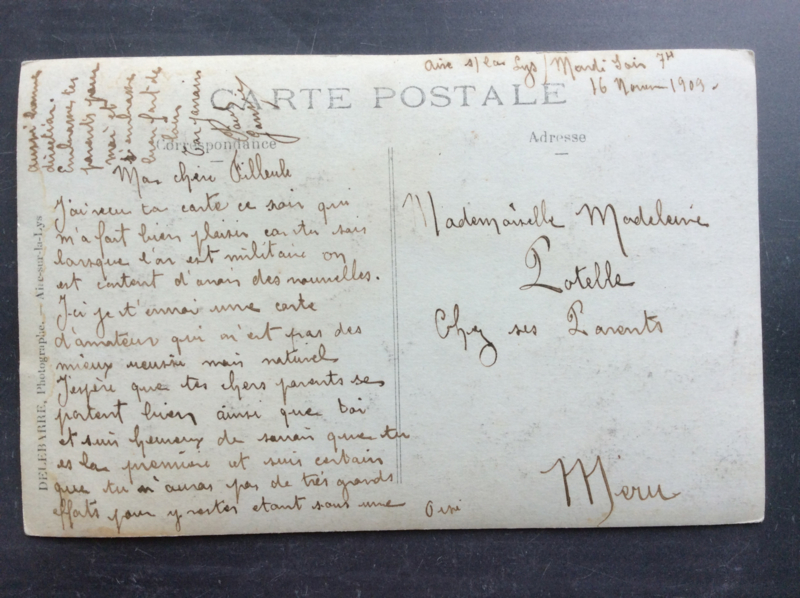 Aire s/ la Lys / Mardi Soir 7H
16 Novem 1909.
CARTE POSTALE
Correspondance
Adresse
Ma chère Filleule
J'ai recu ta carte ce soir qui
m'a fait bien plaisir car tu sais
lorsque l'on est militaire on
est content d'avoir des nouvelles.
Ici je t'envoi une carte
d'amateur qui n'est pas des
mieux reussi mais naturel
J'espère que tes chers parents se
portent bien ainsi que toi
et suis heureux de savoir que tu
es la première et suis certain
que tu n'auras pas de très grands
effots pour y rester etant sous une
aussi bonne
direction.
Embrasse tes
parents pour
moi et
t'embrasse
bien fort de
loin
Ton parrain
Mademoiselle Madeleine
Potelle
Chez ses Parents
Meru
Oise
DELEBARRE, Photographe. — Aire-sur-la-Lys